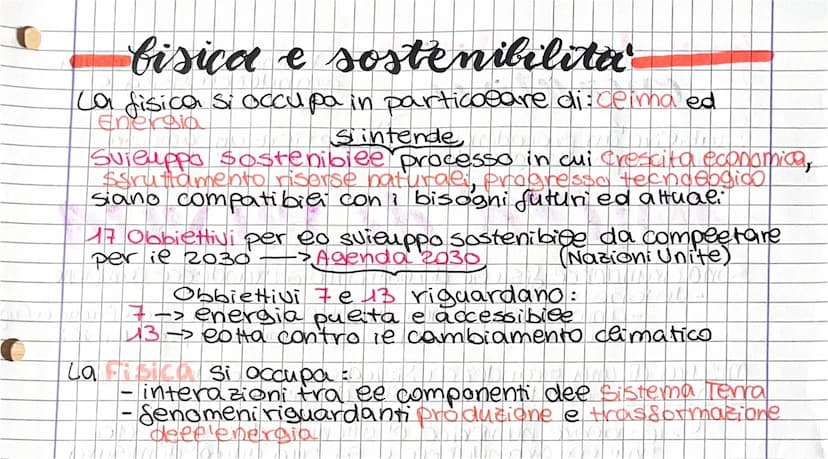 fisica e sostenibilità
La fisica si occupa in particolare di: clima ed
Energia
si intende
Sviluppo sostenibile processo in cui crescita economica,
sfruttamento riserse naturali, progresso tecnologico
siano compatibili con i bisogni futuri ed attuali
17 Obbiettivi per lo sviluppo sostenibile da completare
per il 2030 → Agenda 2030 (Nazioni Unite)
Obbiettivi 7 e 13 riguardano:
7 → energia pulita e accessibile
13 → lotta contro il cambiamento climatico
La Fisica si occupa:
- interazioni tra le componenti del Sistema Terra
- fenomeni riguardanti produzione e trasformazione
dell'energia